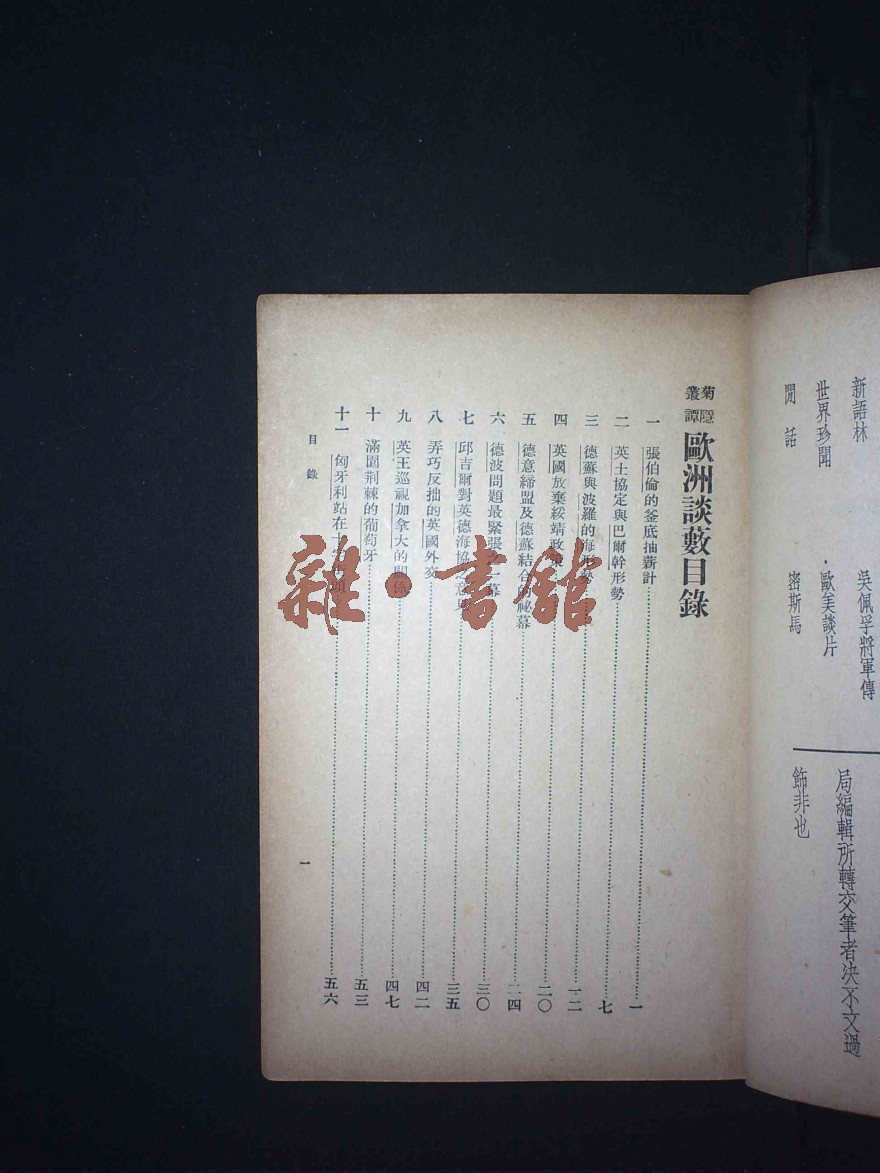 新語林
吳佩孚將軍傳
世界珍聞
・歐美談片
閒話
密斯馬
局編輯所轉交筆者決不文過
飾非也
菊隱叢譚 歐洲談藪目錄
一 張伯倫的釜底抽薪計……一
二 英土協定與巴爾幹形勢……七
三 德蘇與波羅的海形勢……一二
四 英國放棄綏靖政策……二〇
五 德意締盟及德蘇結合的祕幕……二四
六 德波問題最緊張之一幕……三〇
七 邱吉爾對英德海協之意見……三五
八 弄巧反拙的英國外交……四二
九 英王巡視加拿大的關係……四七
十 滿園荆棘的葡萄牙……五三
十一 匈牙利站在十字街頭……五六
目錄
一
雜・書館